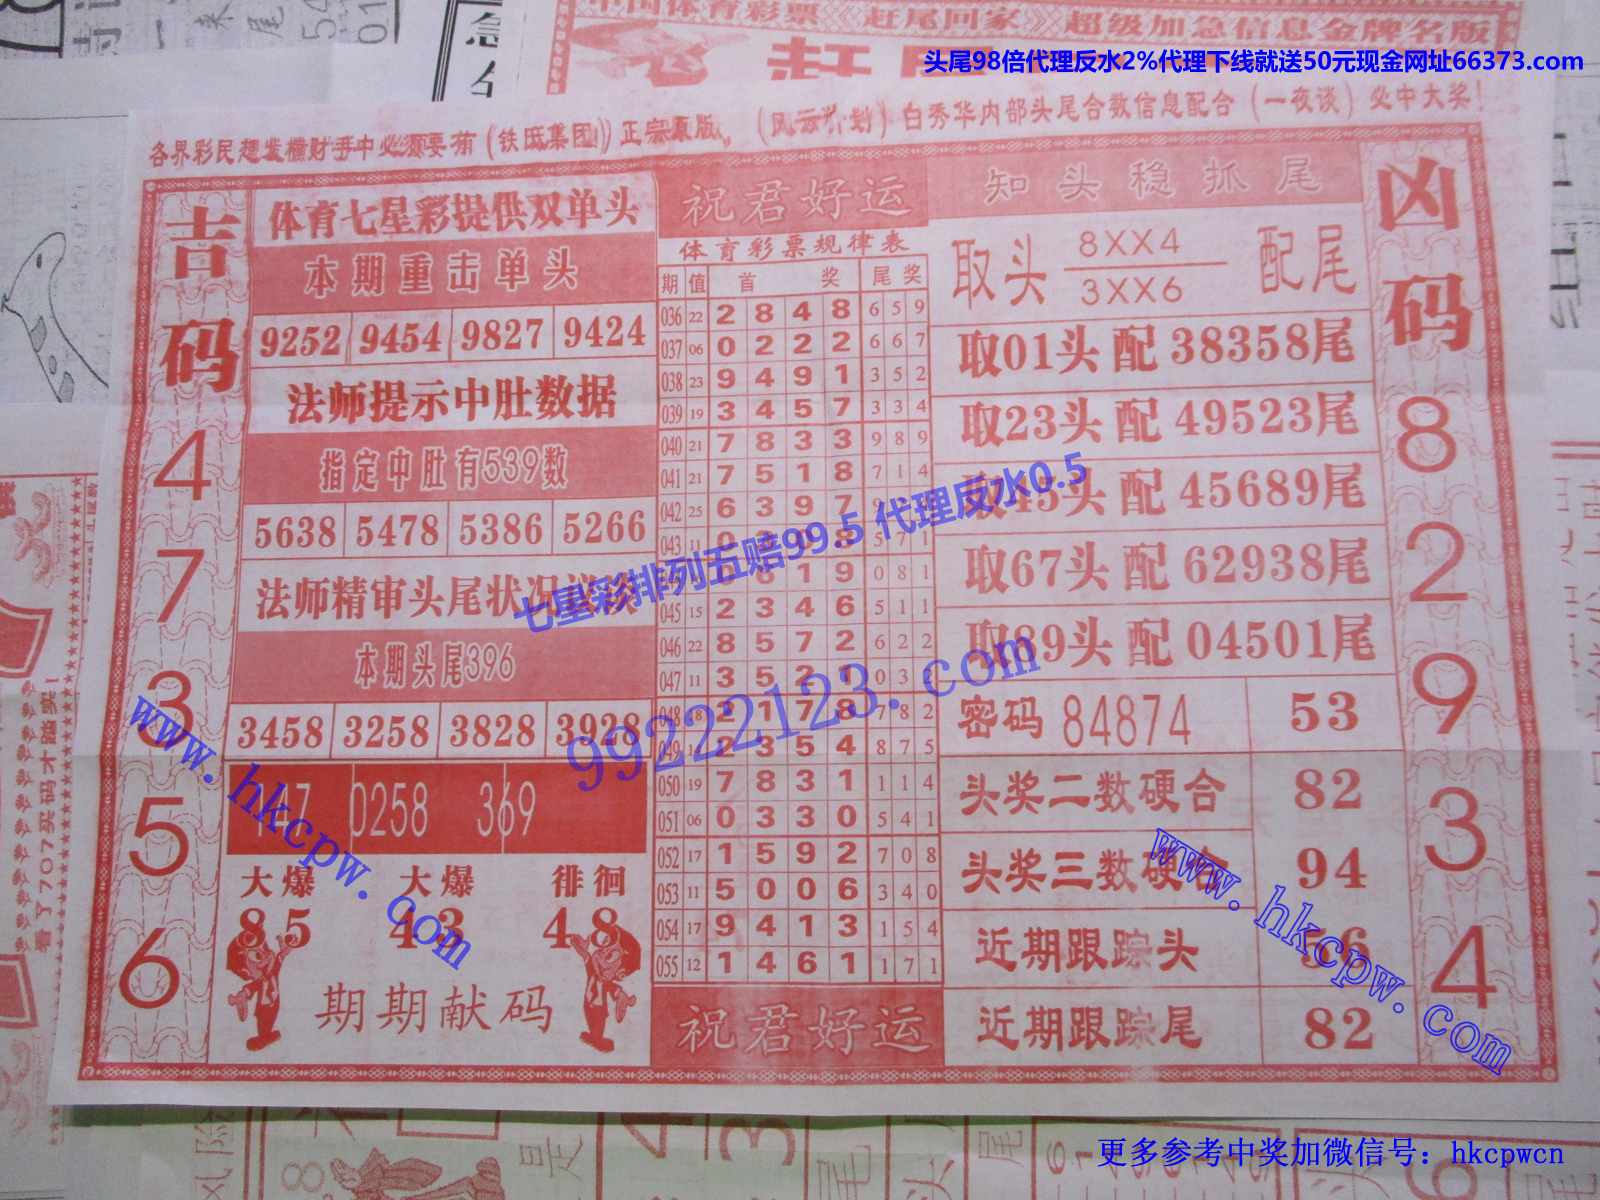 中国体育彩票《赶尾回家》超级加急信息金牌名版
头尾98倍代理反水2%代理下线就送50元现金网址66373.com
各界彩民想发横财手中必须要有(铁医集团)正宗原版,(风云计划)白秀华内部头尾合数信息配合(一夜谈)必中大奖!
吉码
4
7
3
5
6
体育七星彩提供双单头
本期重击单头
9252 9454 9827 9424
法师提示中肚数据
指定中肚有539数
5638 5478 5386 5266
法师精审头尾状况
本期头尾396
3458 3258 3828 3928
147 0258 369
大爆 大爆 徘徊
85 43 48
期期献码
祝君好运
体育彩票规律表
期 值 首 奖 尾 奖
036 22 2 8 4 8 6 5 9
037 06 0 2 2 2 6 6 7
038 23 9 4 9 1 3 5 2
039 19 3 4 5 7 3 3 4
040 21 7 8 3 3 9 8 9
041 21 7 5 1 8 7 1 4
042 25 6 3 9 7
043 11 0 5 7 1
8 1 9 0 8 1
045 15 2 3 4 6 5 1 1
046 22 8 5 7 2 6 2 2
047 11 3 5 2 1 0 3 2
048 18 2 1 7 8 7 8 2
049 2 3 5 4 8 7 5
050 19 7 8 3 1 1 1 4
051 06 0 3 3 0 5 4 1
052 17 1 5 9 2 7 0 8
053 11 5 0 0 6 3 4 0
054 17 9 4 1 3 1 5 4
055 12 1 4 6 1 1 7 1
祝君好运
知头稳抓尾
取头 8XX4 配尾
3XX6
取01头 配 38358尾
取23头 配 49523尾
取45头 配 45689尾
取67头 配 62938尾
取89头 配 04501尾
密码 84874 53
头奖二数硬合 82
头奖三数硬合 94
近期跟踪头 56
近期跟踪尾 82
凶码
8
2
9
3
4
七星彩排列五赔99.5 代理反水0.5
99222123.com
www.hkcpw.com
www.hkcpw.com
更多参考中奖加微信号：hkcpwcn